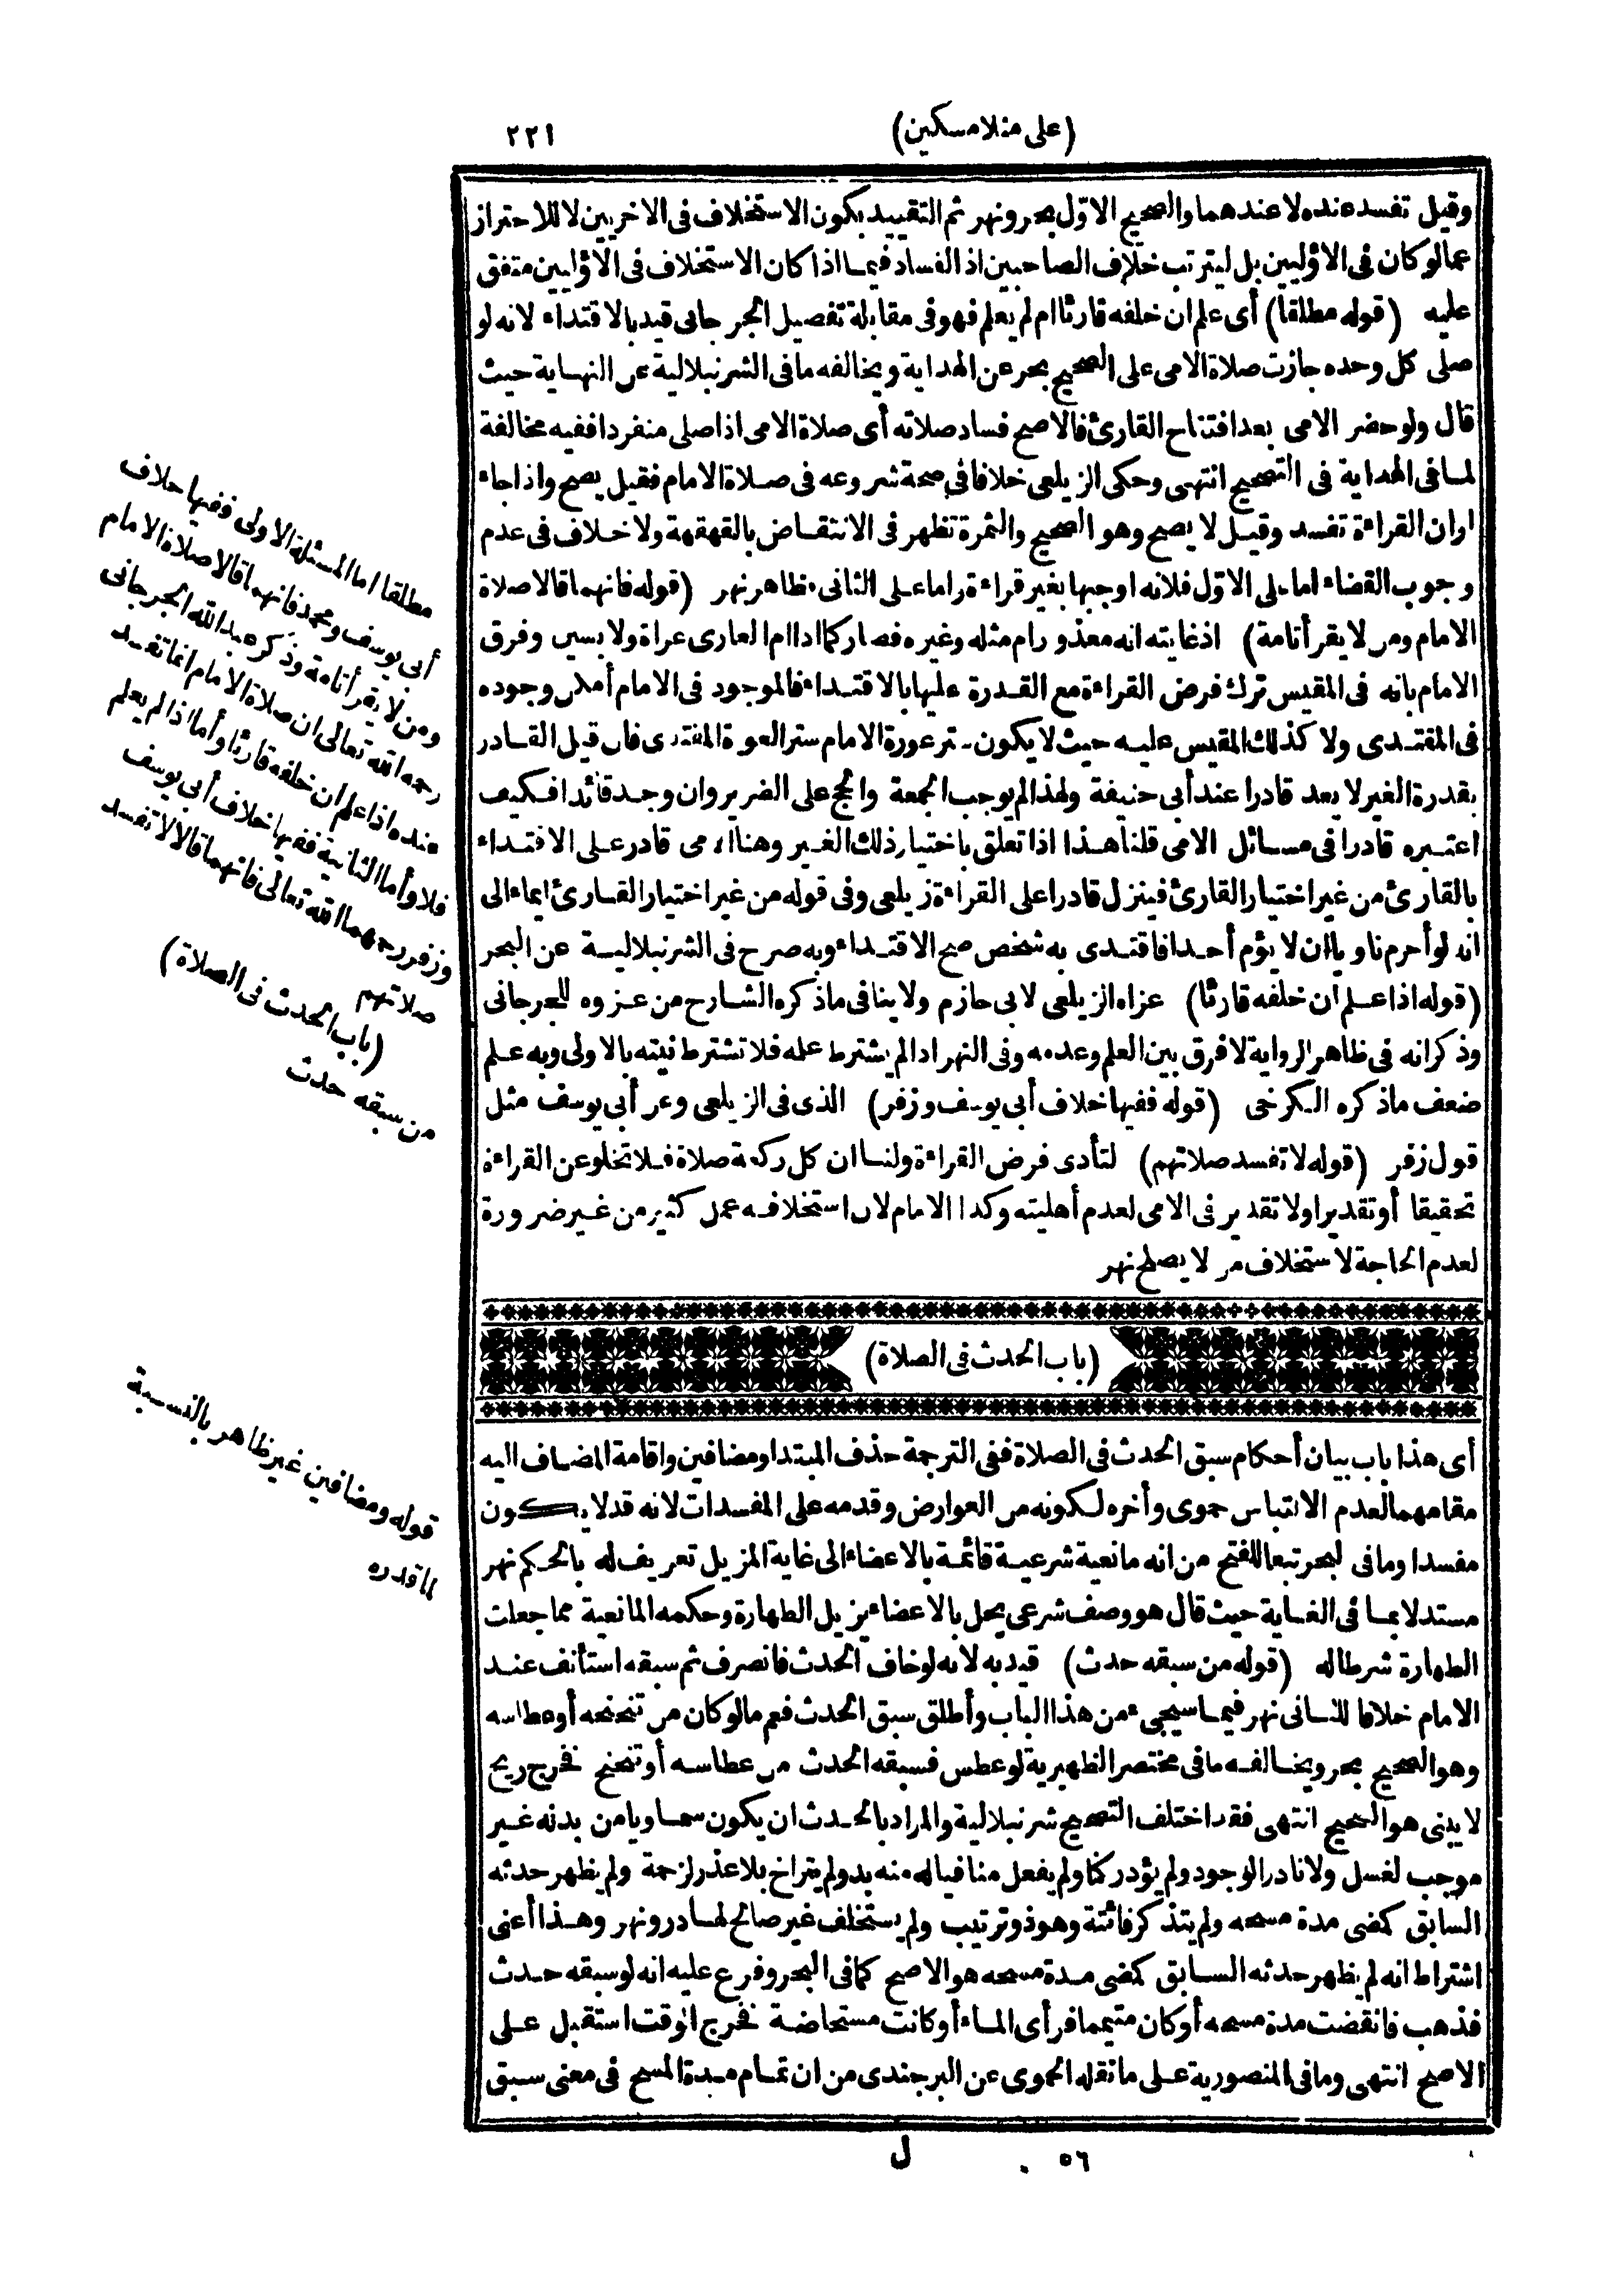 (على منلا مسكين) ٢٢١
وقيل تفسد عنده لا عندهما والصحيح الاوّل بحر ونهر ثم التقييد بكون الاستخلاف فى الاخريين لا للاحتراز
عما لو كان فى الاوّليين بل ليترتب خلاف الصاحبين اذ الفساد فيما اذا كان الاستخلاف فى الاوّليين متفق
عليه (قوله مطلقا) أى علم ان خلفه قارئا ام لم يعلم فهو فى مقابلة تفصيل الجرجانى قيد بالاقتداء لانه لو
صلى كل وحده جازت صلاة الامى على الصحيح بحر عن الهداية ويخالفه ما فى الشرنبلالية عن النهاية حيث
قال ولو حضر الامى بعد افتتاح القارئ فالاصح فساد صلاته أى صلاة الامى اذا صلى منفردا ففيه مخالفة
لما فى الهداية فى التصحيح انتهى وحكى الزيلعى خلافا فى صحة شروعه فى صلاة الامام فقيل يصح واذا جاء
اوان القراءة تفسد وقيل لا يصح وهو الصحيح والثمرة تظهر فى الانتقاض بالقهقهة ولا خلاف فى عدم
وجوب القضاء اما على الاوّل فلانه اوجبها بغير قراءة واما على الثانى فظاهر نهر (قوله فانهما قالا صلاة
الامام ومن لا يقرأ تامة) اذ غايته انه معذور ام مثله وغيره فصار كما اذا ام العارى عراة ولابسين وفرق
الامام بانه فى المقيس ترك فرض القراءة مع القدرة عليها بالاقتداء فالموجود فى الامام أمكن وجوده
فى المقتدى ولا كذلك المقيس عليه حيث لا يكون ستر عورة الامام ستر العورة المقتدى فان قيل القادر
بقدرة الغير لا يعد قادرا عند أبى حنيفة ولهذا لم يوجب الجمعة والحج على الضرير وان وجد قائدا فكيف
اعتبره قادرا فى مسائل الامى قلنا هذا اذا تعلق باختيار ذلك الغير وهنا الامى قادر على الاقتداء
بالقارئ من غير اختيار القارئ فينزل قادرا على القراءة زيلعى وفى قوله من غير اختيار القارئ ايماء الى
انه لو أحرم ناويا ان لا يؤم أحدا فاقتدى به شخص صح الاقتداء وبه صرح فى الشرنبلالية عن البحر
(قوله اذا علم أن خلفه قارئا) عزاه الزيلعى لابى حازم ولا ينافى ما ذكره الشارح من عزوه للجرجانى
وذكر انه فى ظاهر الرواية لا فرق بين العلم وعدمه وفى النهر اذا لم يشترط علمه فلا تشترط نيته بالاولى وبه علم
ضعف ما ذكره الكرخى (قوله ففيها خلاف أبى يوسف وزفر) الذى فى الزيلعى وعن أبى يوسف مثل
قول زفر (قوله لا تفسد صلاتهم) لتأدى فرض القراءة ولنا ان كل ركعة صلاة فلا تخلو عن القراءة
تحقيقا أو تقديرا ولا تقدير فى الامى لعدم أهليته وكذا الامام لان استخلافه عمل كثير من غير ضرورة
لعدم الحاجة لاستخلاف من لا يصلح نهر
(باب الحدث فى الصلاة)
أى هذا باب بيان أحكام سبق الحدث فى الصلاة ففى الترجمة حذف المبتدا ومضافين واقامة المضاف اليه
مقامهما لعدم الالتباس حموى وأخره لكونه من العوارض وقدمه على المفسدات لانه قد لا يكون
مفسدا وما فى البحر تبعا للفتح من انه مانعية شرعية قائمة بالاعضاء الى غاية المزيل تعريف له بالحكم نهر
مستدلا بما فى الغاية حيث قال هو وصف شرعى يحل بالاعضاء يزيل الطهارة وحكمه المانعية مما جعلت
الطهارة شرطا له (قوله من سبقه حدث) قيد به لانه لو خاف الحدث فانصرف ثم سبقه استأنف عند
الامام خلافا للثانى نهر فيما سيجىء من هذا الباب وأطلق سبق الحدث فعم ما لو كان من تنحنحه أو عطاسه
وهو الصحيح بحر ويخالفه ما فى مختصر الظهيرية لو عطس فسبقه الحدث من عطاسه أو تنحنح فخرج ريح
لا يبنى هو الصحيح انتهى فقد اختلف التصحيح شرنبلالية والمراد بالحدث ان يكون سماويا من بدنه غير
موجب لغسل ولا نادر الوجود ولم يؤد ركنا ولم يفعل منافيا له منه بد ولم يتراخ بلا عذر لزحمة ولم يظهر حدثه
السابق كمضى مدة مسحه ولم يتذكر فائتة وهو ذو ترتيب ولم يستخلف غير صالح لها در ونهر وهذا أعنى
اشتراط انه لم يظهر حدثه السابق كمضى مدة مسحه هو الاصح كما فى البحر وفرع عليه انه لو سبقه حدث
فذهب فانقضت مدة مسحه أو كان متيمما فرأى الماء أو كانت مستحاضة فخرج الوقت استقبل على
الاصح انتهى وما فى المنصورية على ما نقله الحموى عن البرجندى من ان تمام مدة المسح فى معنى سبق
٥٦ ل
مطلقا اما المسئلة الاولى ففيها خلاف
أبى يوسف ومحمد فانهما قالا صلاة الامام
ومن لا يقرأ تامة وذكر عبد الله الجرجانى
رحمه الله تعالى ان صلاة الامام انما تفسد
عنده اذا علم ان خلفه قارئا وأما اذا لم يعلم
فلا وأما الثانية ففيها خلاف أبى يوسف
وزفر رحمهما الله تعالى فانهما قالا لا تفسد
صلاتهم
(باب الحدث فى الصلاة)
من سبقه حدث
قوله ومضافين غير ظاهر بالنسبة
لما قدره